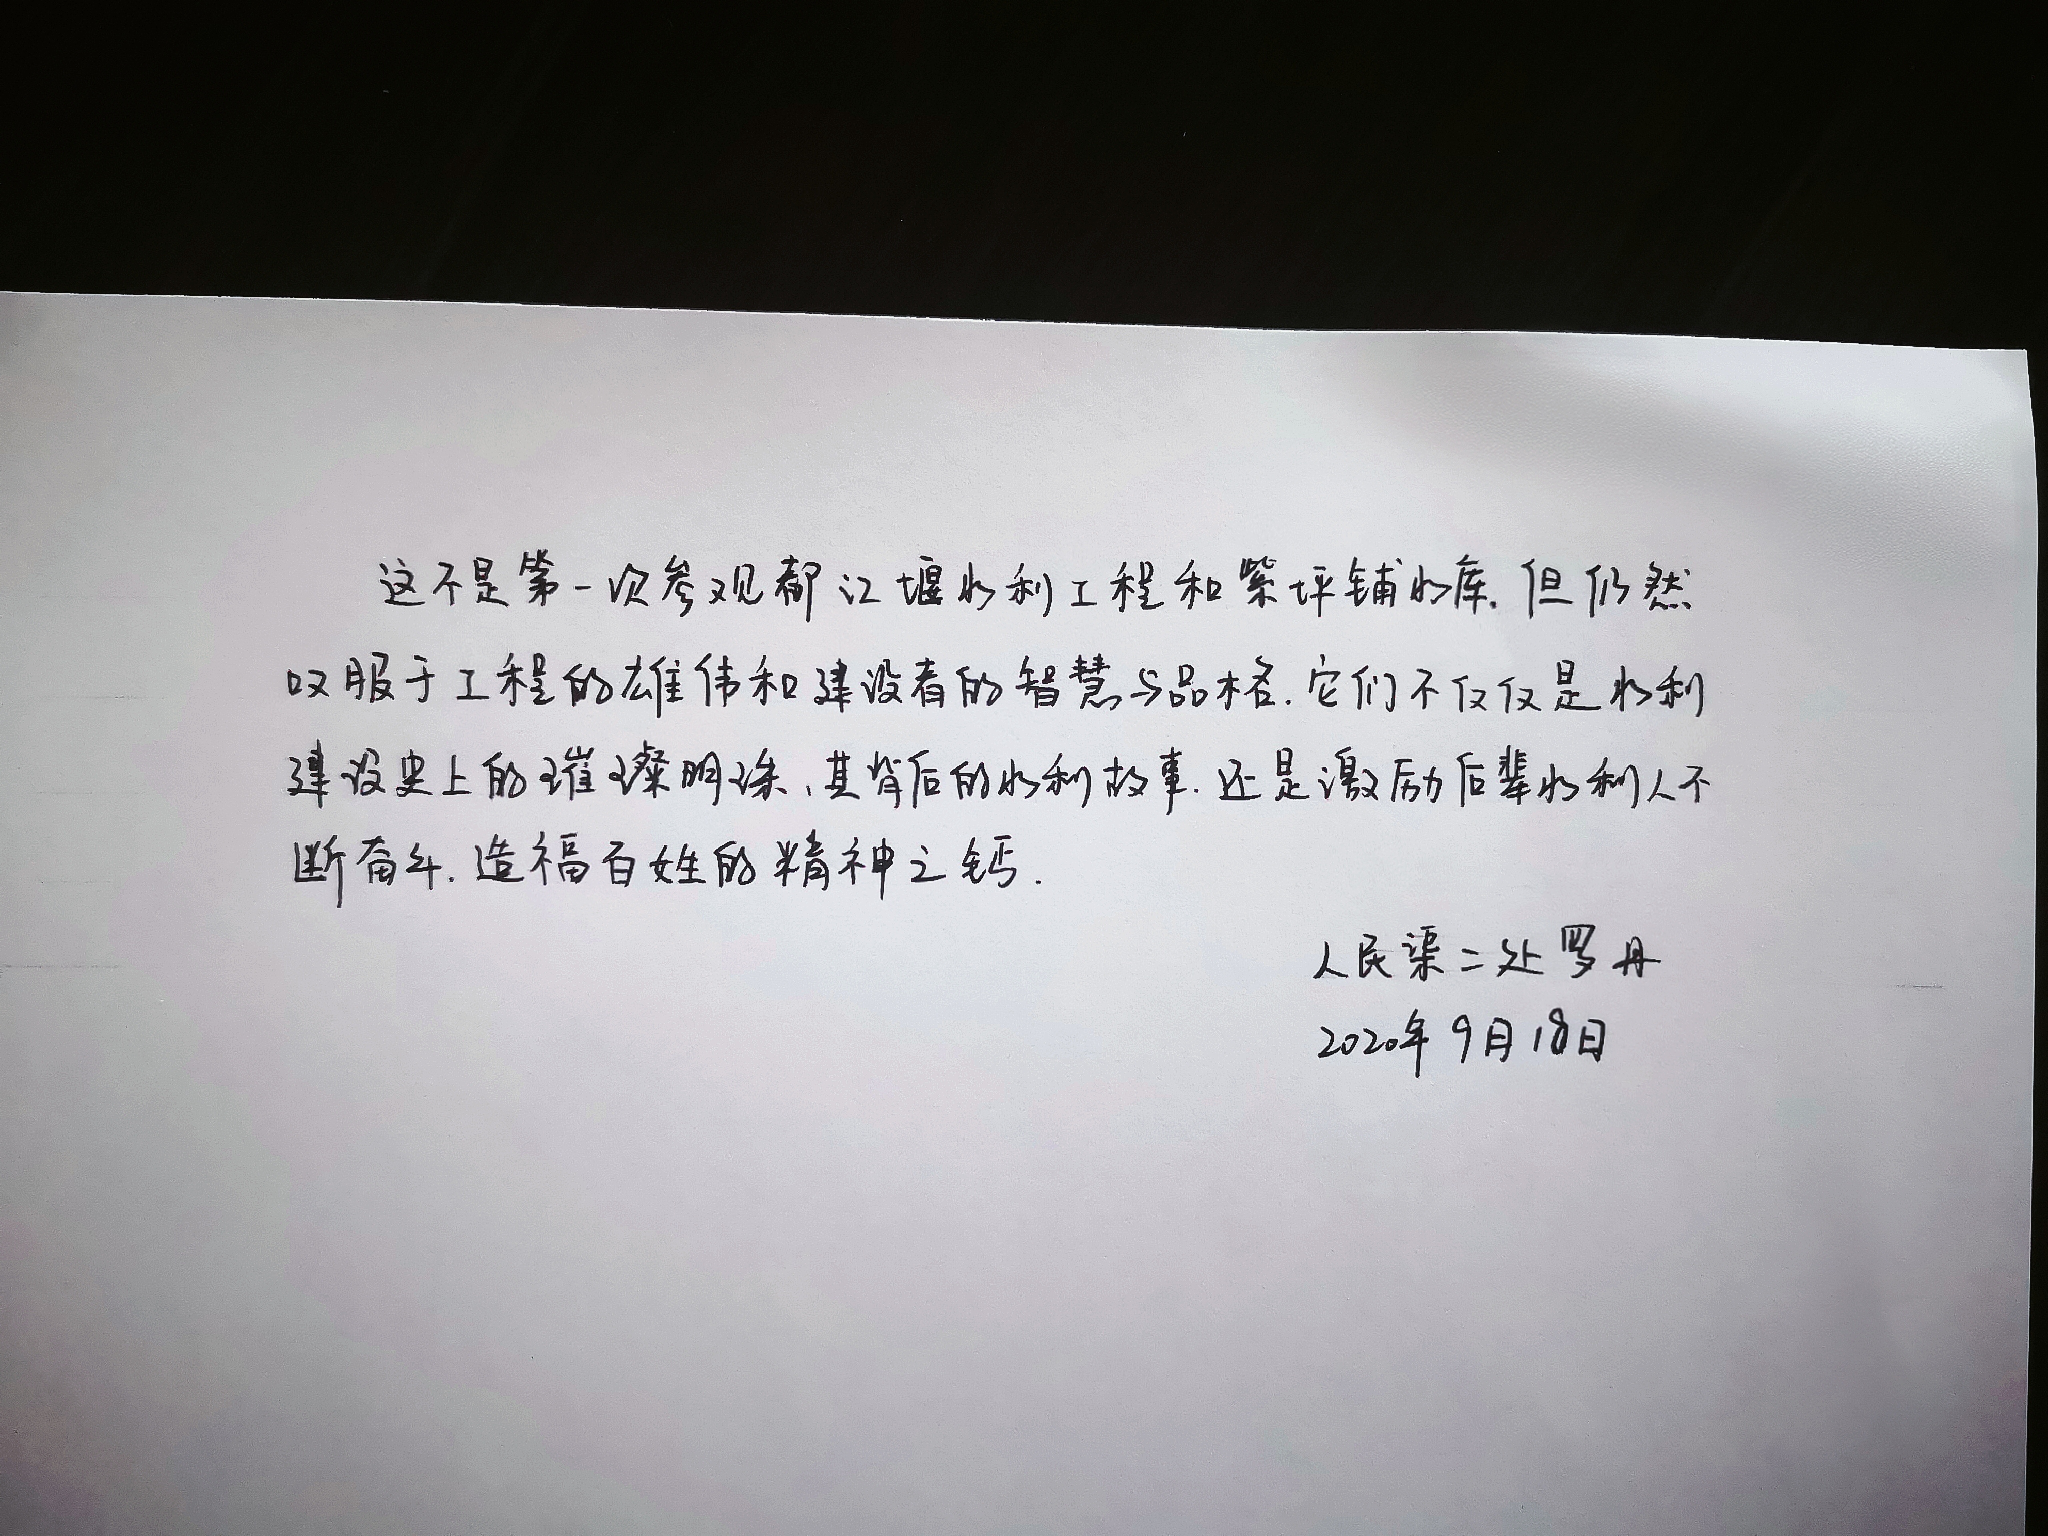 这不是第一次参观都江堰水利工程和紫坪铺水库.但仍然
叹服于工程的雄伟和建设者的智慧与品格.它们不仅仅是水利
建设史上的璀璨明珠、其背后的水利故事.还是激励后辈水利人不
断奋斗.造福百姓的精神之钙.
人民渠二处罗丹
2020年9月18日